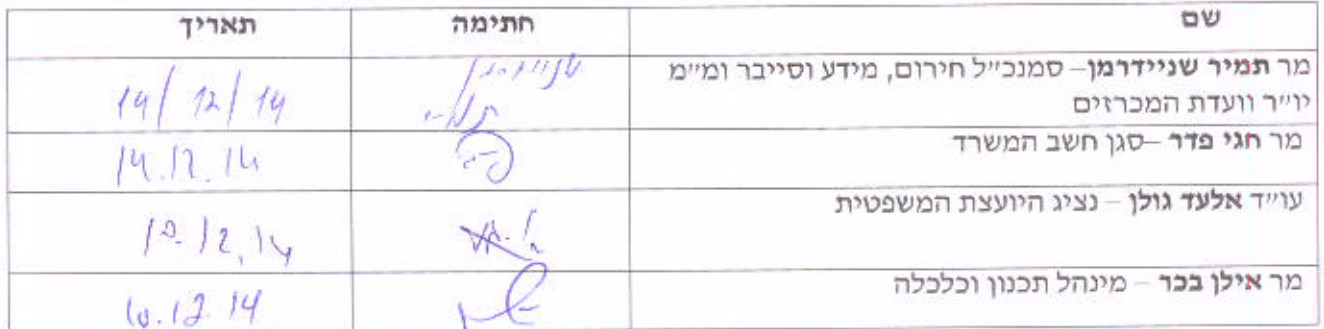 שם חתימה תאריך
מר תמיר שניידרמן – סמנכ״ל חירום, מידע וסייבר ומ״מ שניידרמן
יו״ר וועדת המכרזים תמיר 14/12/14
מר חגי פדר – סגן חשב המשרד 14.12.14
עו״ד אלעד גולן – נציג היועצת המשפטית 10.12.14
מר אילן בכר – מינהל תכנון וכלכלה 10.12.14